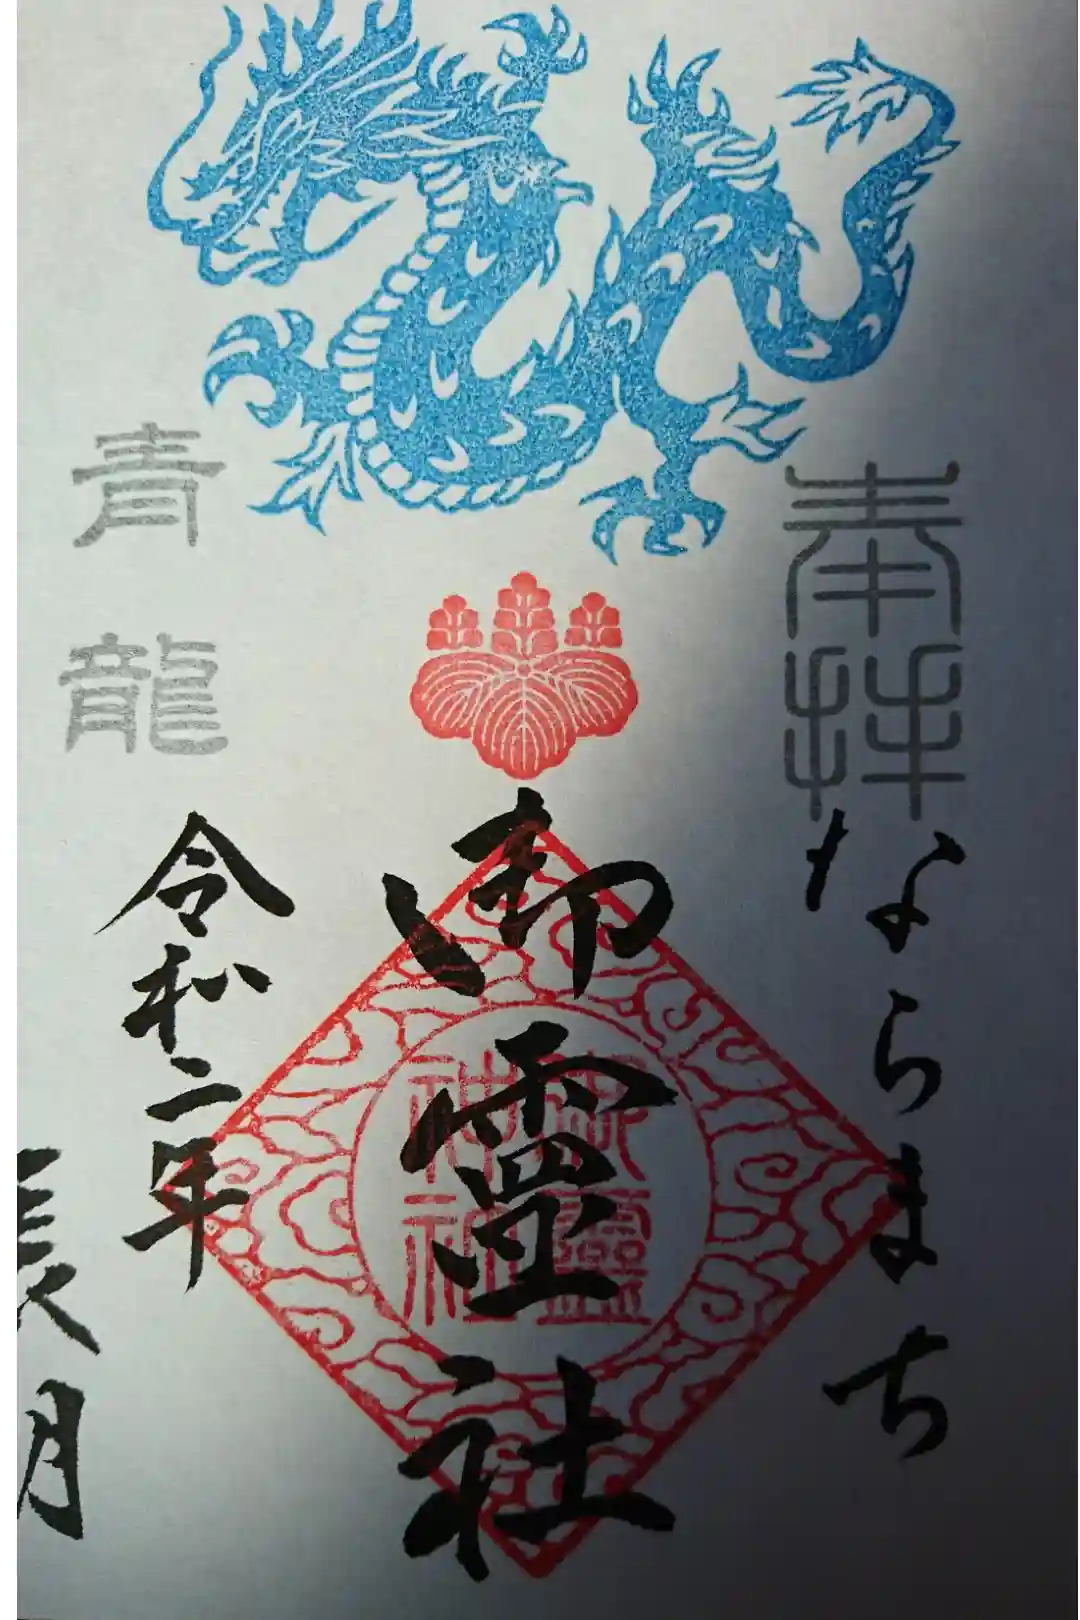 奉拝
ならまち
御靈社
御靈
神社
青龍
令和二年
長月